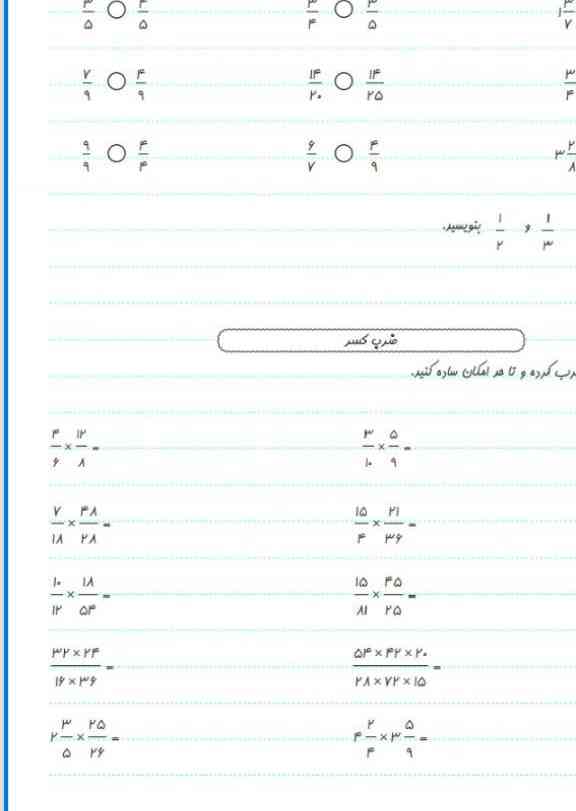 ۳/۵ ○ ۴/۵   ۳/۴ ○ ۳/۵
۷/۹ ○ ۴/۹   ۱۴/۲۰ ○ ۱۴/۲۵   ۳/۴
۹/۹ ○ ۴/۴   ۶/۷ ○ ۴/۹   ۳ ۲/۸
۱/۳ و ۱/۲ بنویسید.
ضرب کسر
کرده و تا حد امکان ساده کنید.
۴/۶ × ۱۲/۸ =   ۳/۱۰ × ۵/۹ =
۷/۱۸ × ۴۸/۲۸ =   ۱۵/۴ × ۲۱/۳۶ =
۱۰/۱۲ × ۱۸/۵۴ =   ۱۵/۸۱ × ۴۵/۲۵ =
۳۲×۲۴/۱۶×۳۶ =   ۵۴×۴۲×۲۰/۲۸×۷۲×۱۵ =
۲ ۳/۵ × ۲۵/۲۶ =   ۴ ۲/۴ × ۳ ۵/۹ =